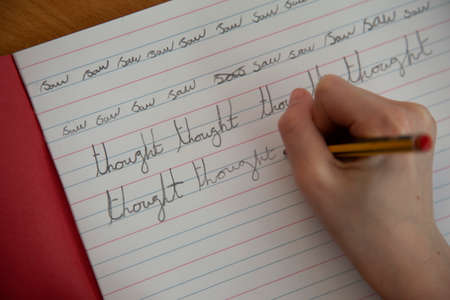 saw saw saw saw saw saw saw saw saw
saw saw saw saw saw saw saw saw saw
thought thought thought thought
thought thought